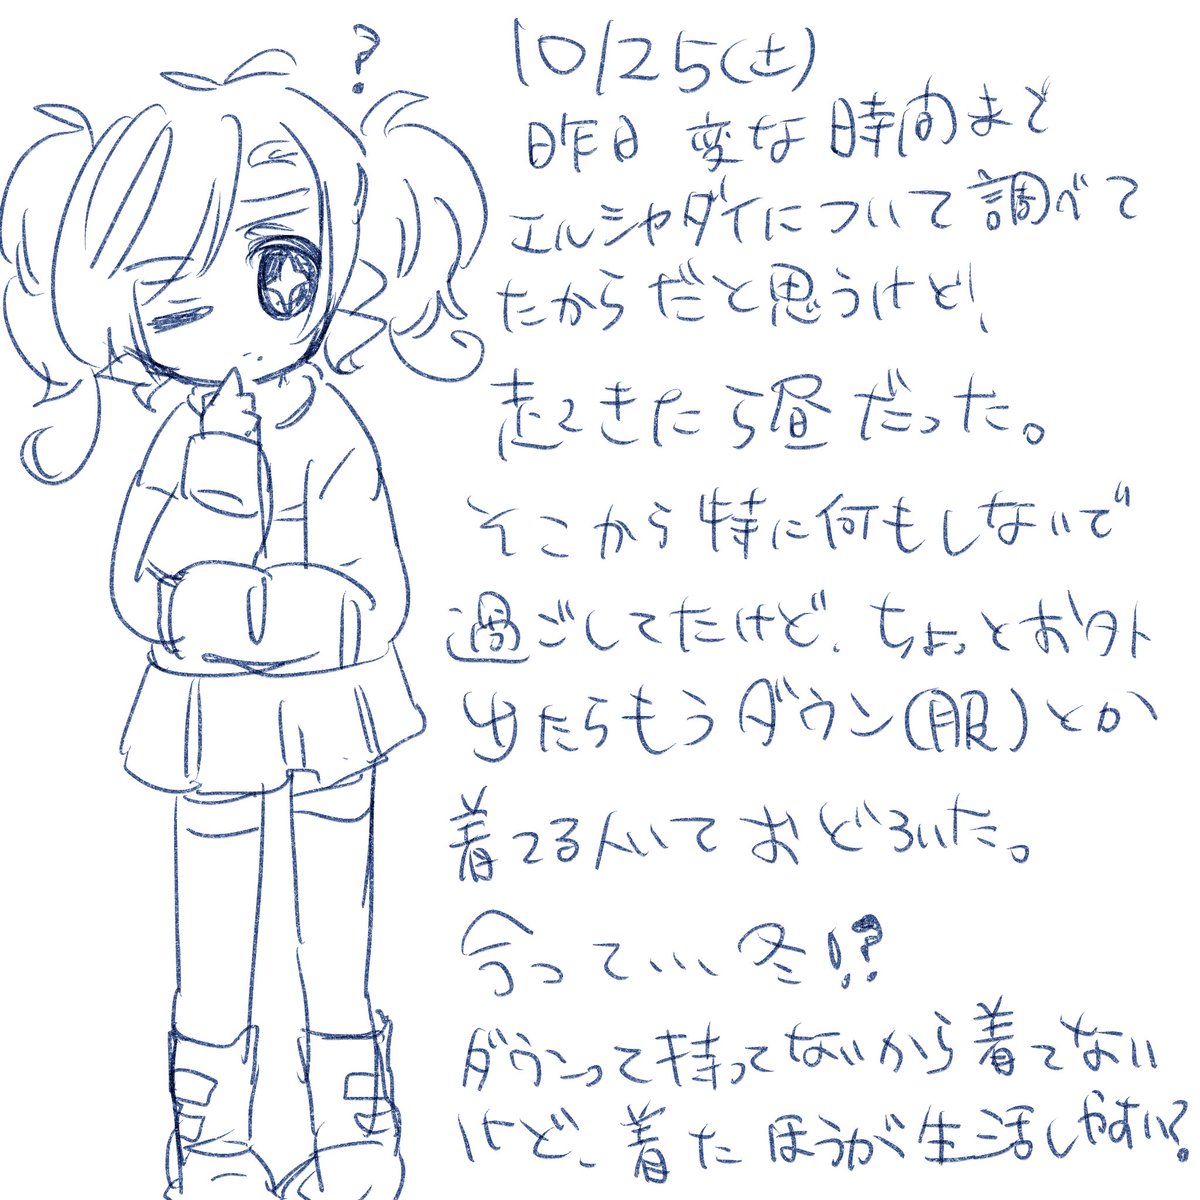 ?
10/25(土)
昨日 変な時間まで
エルシャダイについて調べて
たからだと思うけど!
起きたら昼だった。
そこから特に何もしないで
過ごしてたけど、ちょっとお外
出たらもうダウン(服)とか
着てる人いておどろいた。
今って、、、冬!?
ダウンって持ってないから着てない
けど、着たほうが生活しやすい?